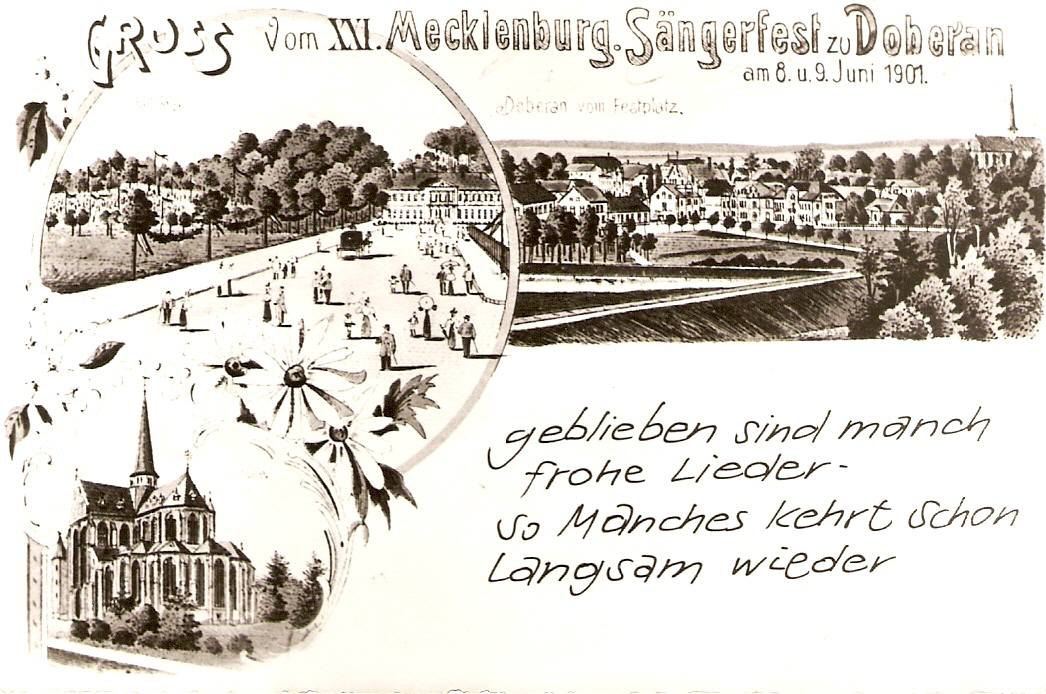 GRUSS vom XXI. Mecklenburg. Sängerfest zu Doberan
am 8. u. 9. Juni 1901.
Doberan vom Festplatz.
geblieben sind manch
frohe Lieder -
so Manches kehrt schon
Langsam wieder